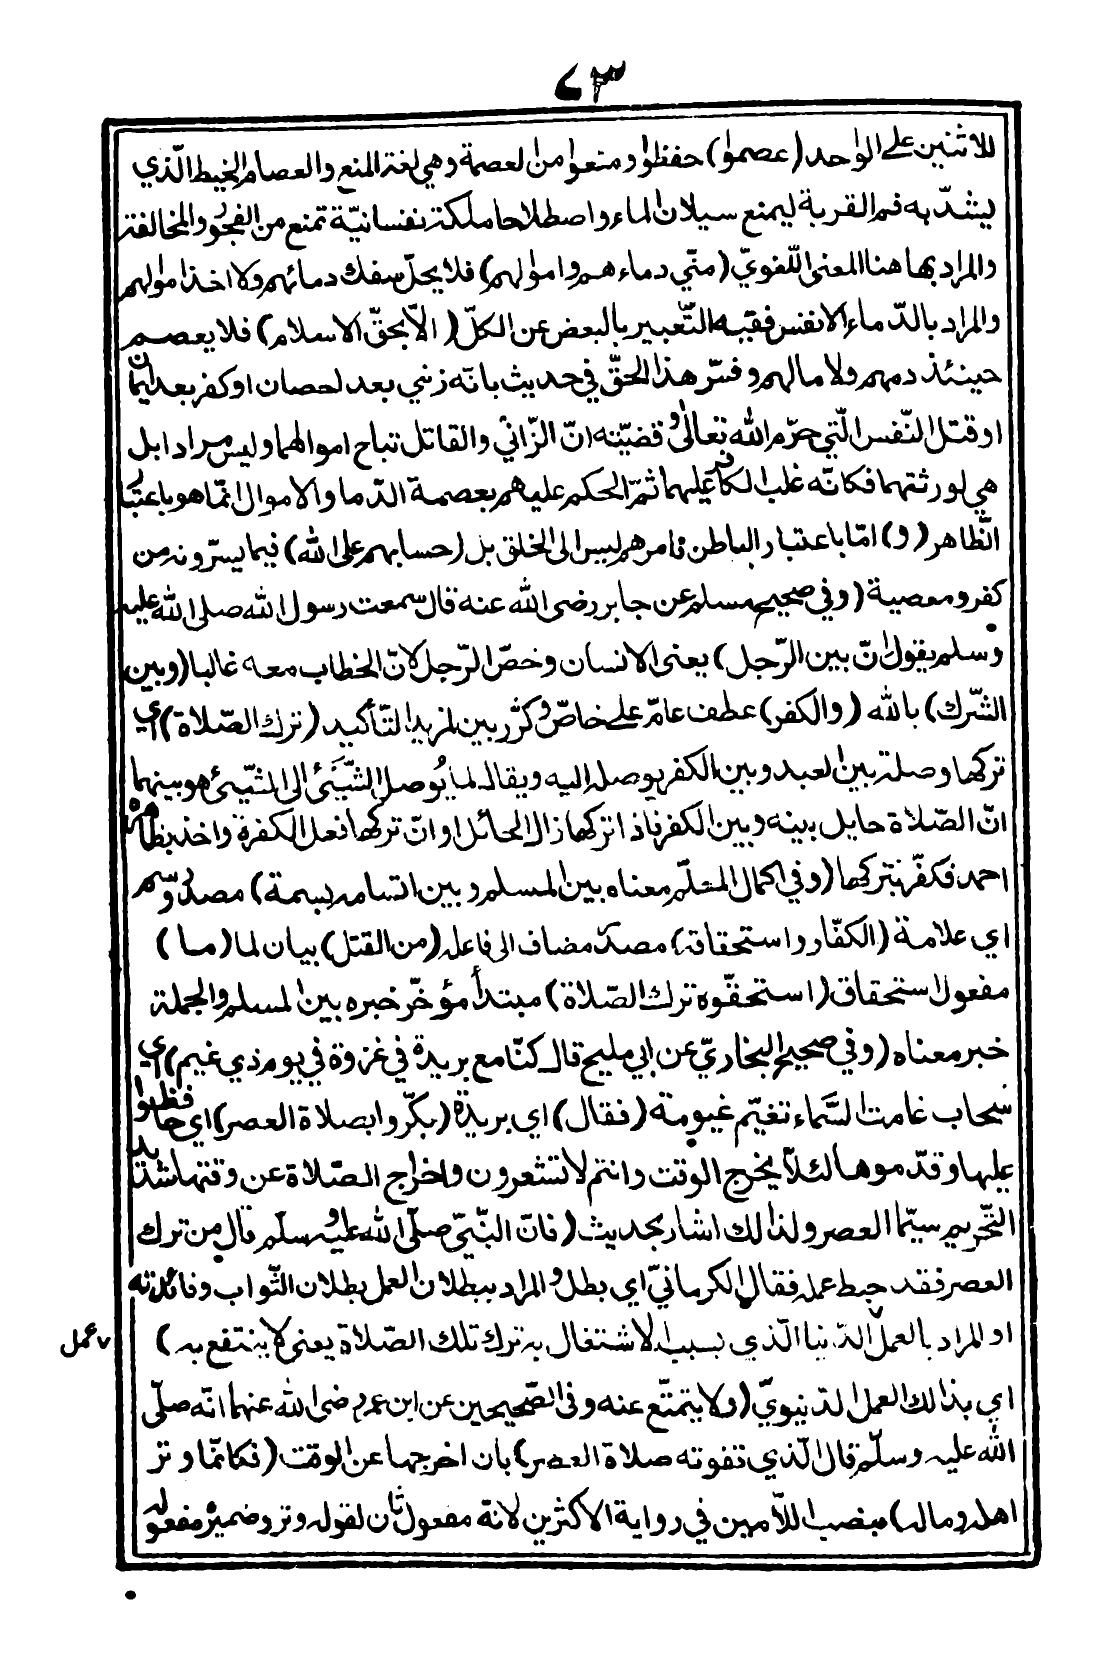 ٧٣
للاثنين على الواحد (عصموا) حفظوا ومنعوا من العصمة وهي لغة المنع والعصام الخيط الّذي
يشدّ به فم القربة ليمنع سيلان الماء واصطلاحا ملكة نفسانيّة تمنع من الفجور والمخالفة
والمراد بها هنا المعنى اللّغويّ (منّي دماءهم واموالهم) فلا يحلّ سفك دمائهم ولا اخذ اموالهم
والمراد بالدّماء الانفس ففيه التّعبير بالبعض عن الكلّ (الاّ بحقّ الاسلام) فلا يعصم
حينئذ دمهم ولا مالهم وفسّر هذا الحقّ في حديث بانّه زنى بعد احصان او كفر بعد ايمان
او قتل النّفس الّتي حرّم الله تعالى وقضيّته انّ الزّاني والقاتل تباح اموالهما وليس مرادا بل
هي لورثتهما فكانّه غلب الكافر عليهما ثمّ الحكم عليهم بعصمة الدّما والاموال انّما هو باعتبار
الظّاهر (و) امّا باعتبار الباطن فامرهم ليس الى الخلق بل (حسابهم على الله) فيما يسرّونه من
كفر ومعصية (وفي صحيح مسلم عن جابر رضى الله عنه قال سمعت رسول الله صلى الله عليه
وسلم يقول انّ بين الرّجل) يعنى الانسان وخصّ الرّجل لانّ الخطاب معه غالبا (وبين
الشّرك) بالله (والكفر) عطف عامّ على خاصّ وكرّر بين لمزيد التّأكيد (ترك الصّلاة) اي
تركها وصلة بين العبد وبين الكفر يوصله اليه ويقال لما يُوصل الشَّيئَ الى الشّيئ هو بينهما
انّ الصّلاة حايل بينه وبين الكفر فاذا تركها زال الحائل او انّ تركها فعل الكفرة واخذ بظاهره
احمد فكفّر بتركها (وفي اكمال المعلّم معناه بين المسلم وبين اتّسامه بسمة) مصدر وسم
اي علامة (الكفّار واستحقاقه) مصدر مضاف الى فاعله (من القتل) بيان لما (ما)
مفعول استحقاق (استحقّوه ترك الصّلاة) مبتدأ مؤخّر خبره بين المسلم والجملة
خبر معناه (وفي صحيح البخاريّ عن ابي مليح قال كنّا مع بريدة في غزوة في يوم ذي غيم) اي
سحاب غامت السّماء تغيّم غيومة (فقال) اي بريدة (بكّروا بصلاة العصر) اي حافظوا
عليها وقدّموها لئلاّ يخرج الوقت وانتم لا تشعرون واخراج الصّلاة عن وقتها شديد
التّحريم سيّما العصر ولذلك اشار بحديث (فانّ النّبيّ صلّى الله عليه وسلّم قال من ترك
العصر فقد حبط عمله فقال الكرمانيّ اي بطل والمراد ببطلان العمل بطلان الثّواب وفائدته
او المراد بالعمل الدّنيا الّذي بسبب الاشتغال به ترك تلك الصّلاة يعنى لا ينتفع به)
عمل
اي بذلك العمل الدّنيويّ (ولا يتمتّع عنه وفى الصّحيحين عن ابن عمر رضى الله عنهما انّه صلّى
الله عليه وسلّم قال الّذي تفوته صلاة العصر) بان اخرجها عن الوقت (فكانّما وتر
اهله وماله) بنصب اللاّمين في رواية الاكثرين لانّه مفعول ثان لقوله وتر وضمير مفعوله